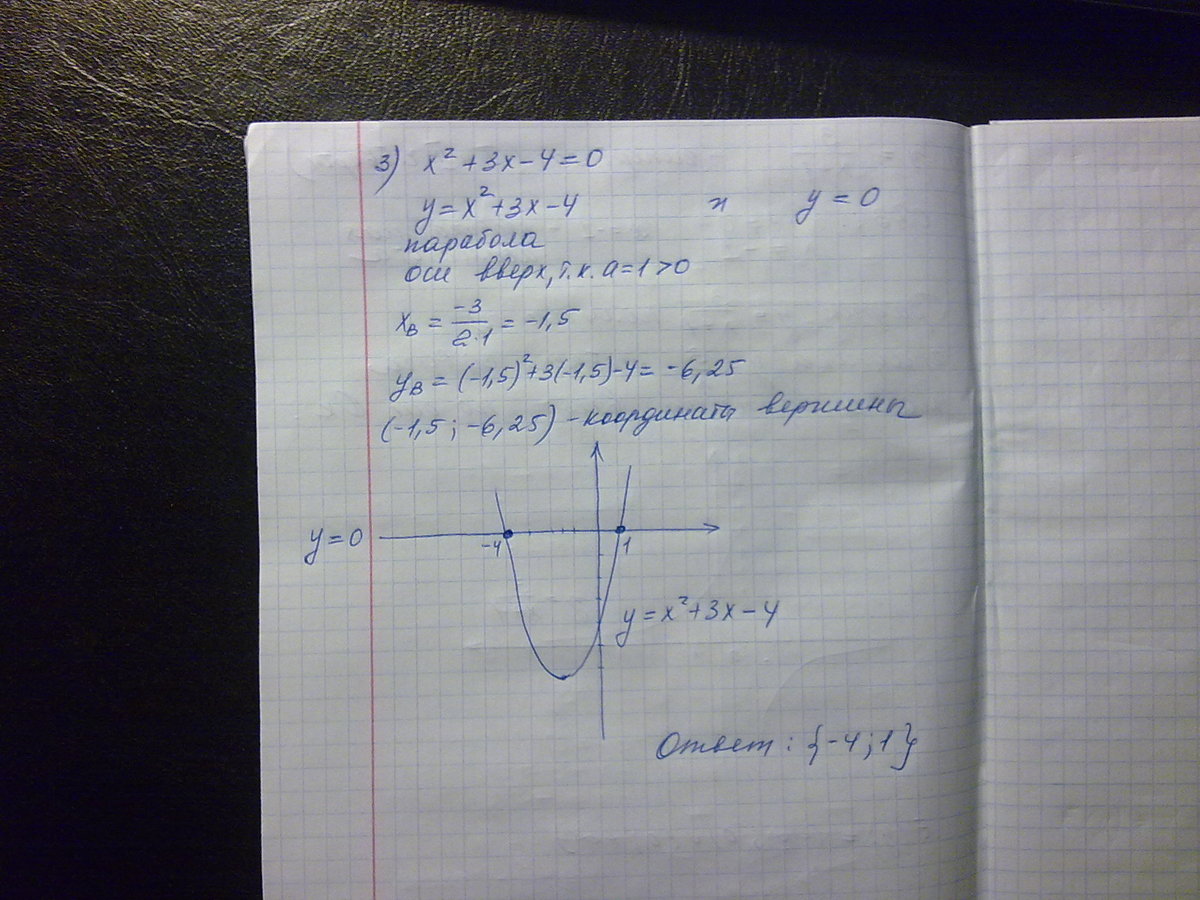 3) x² + 3x - 4 = 0
y = x² + 3x - 4 и y = 0
парабола
оси вверх, т.к. a = 1 > 0
xв = -3/2·1 = -1,5
yв = (-1,5)² + 3(-1,5) - 4 = -6,25
(-1,5; -6,25) - координаты вершины
y = 0
-4 1
y = x² + 3x - 4
Ответ: {-4; 1}